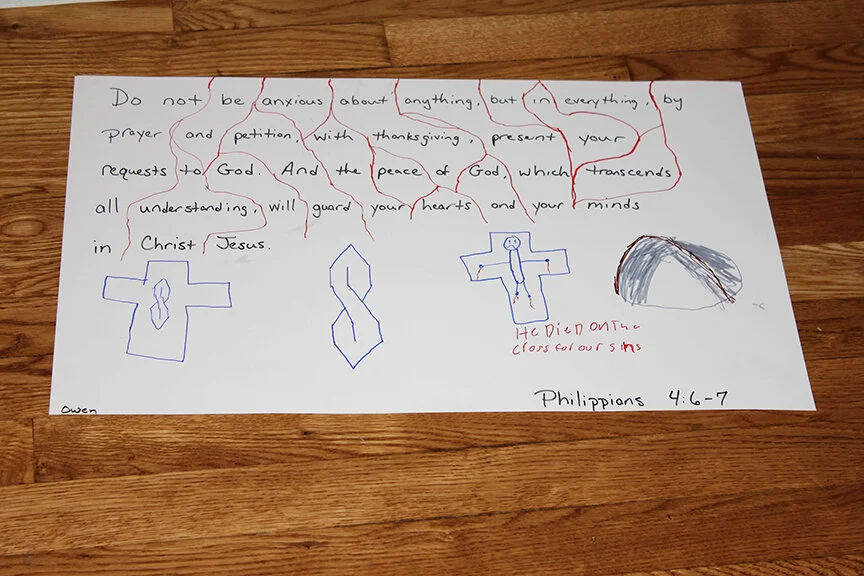 Do not be anxious about anything, but in everything, by
prayer and petition, with thanksgiving, present your
requests to God. And the peace of God, which transcends
all understanding, will guard your hearts and your minds
in Christ Jesus.
HE DiED ON The
cross for our sins
Philippians 4:6-7
Owen